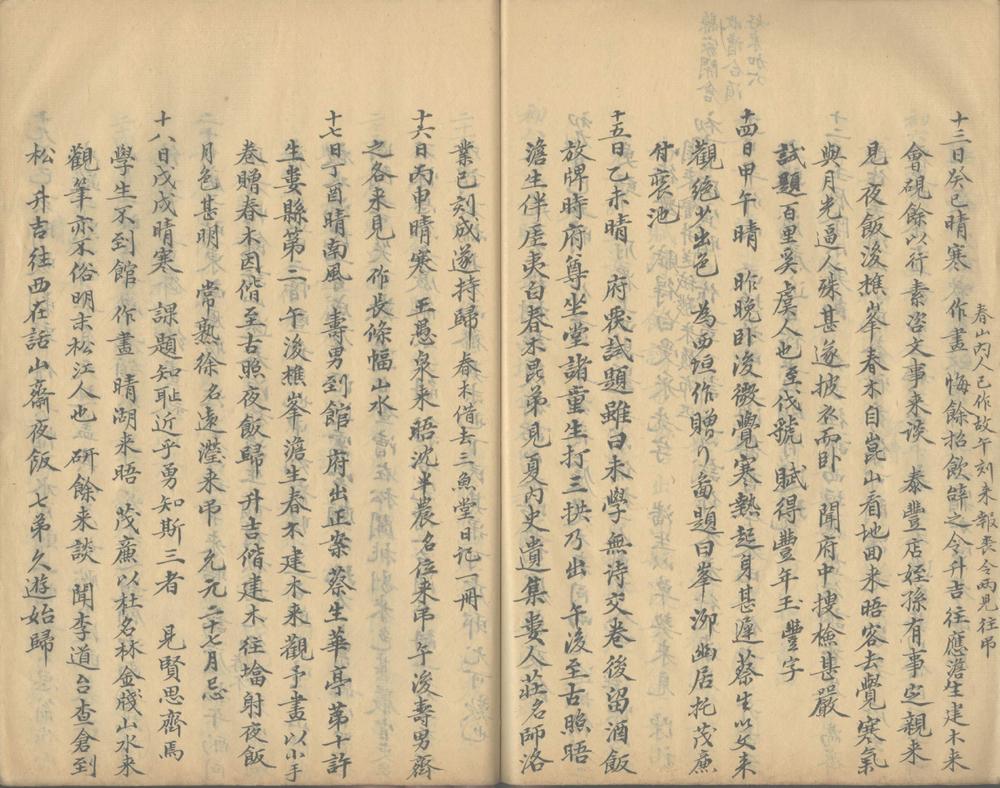 春山內人已作故午刻来報喪令両兒往吊
十三日癸巳晴寒　作畫　悔餘招飲辭之令升吉往應澹生建木来
會硯餘以行素咨文事来谈　泰豐店姪孫有事邀親来
見　夜飯後樵峯春木自崑山看地囬来晤客去覺寒氣
與月光逼人殊甚遂披衣而卧聞府中搜檢甚嚴
試題百里奚虞人也至伐虢　賦得豐年玉　豐字
十四日甲午晴　昨晚卧後微覺寒熱起身甚遲蔡生以文来
觀絶少出色　為西垣作贈行啚題曰峯泖幽居托茂亷
付裱池
十五日乙未晴　府覆試題雖曰未學無诗交卷後留酒飯
放牌時府尊坐堂諸童生打三拱乃出　午後至古照晤
澹生伴屋夷白春木昆弟見夏内史遺集婁人莊名師洛
業已刻成遂持歸　春木借去三魚堂日记一冊
十六日丙申晴寒　王愚泉来晤沈半農名位来吊午後壽男齋
之各来見　作長條幅山水
十七日丁酉晴南風　壽男到館　府出正案蔡生華亭第十許
生婁縣第二　午後樵峯澹生春木建木来觀予畫以小手
卷贈春木因偕至古照夜飯歸升吉偕建木往墖射夜飯
月色甚明　常熟徐名遠瀅来吊　元元二十七月忌
十八日戊戌晴寒　課題知耻近乎勇知斯三者　見賢思齊焉
學生不到館　作畫　晴湖来晤　茂亷以杜名林金牋山水来
觀筆亦不俗明末松江人也　研餘来談　聞李道台查倉到
松　升吉往西在話山齋夜飯　七弟久遊始歸